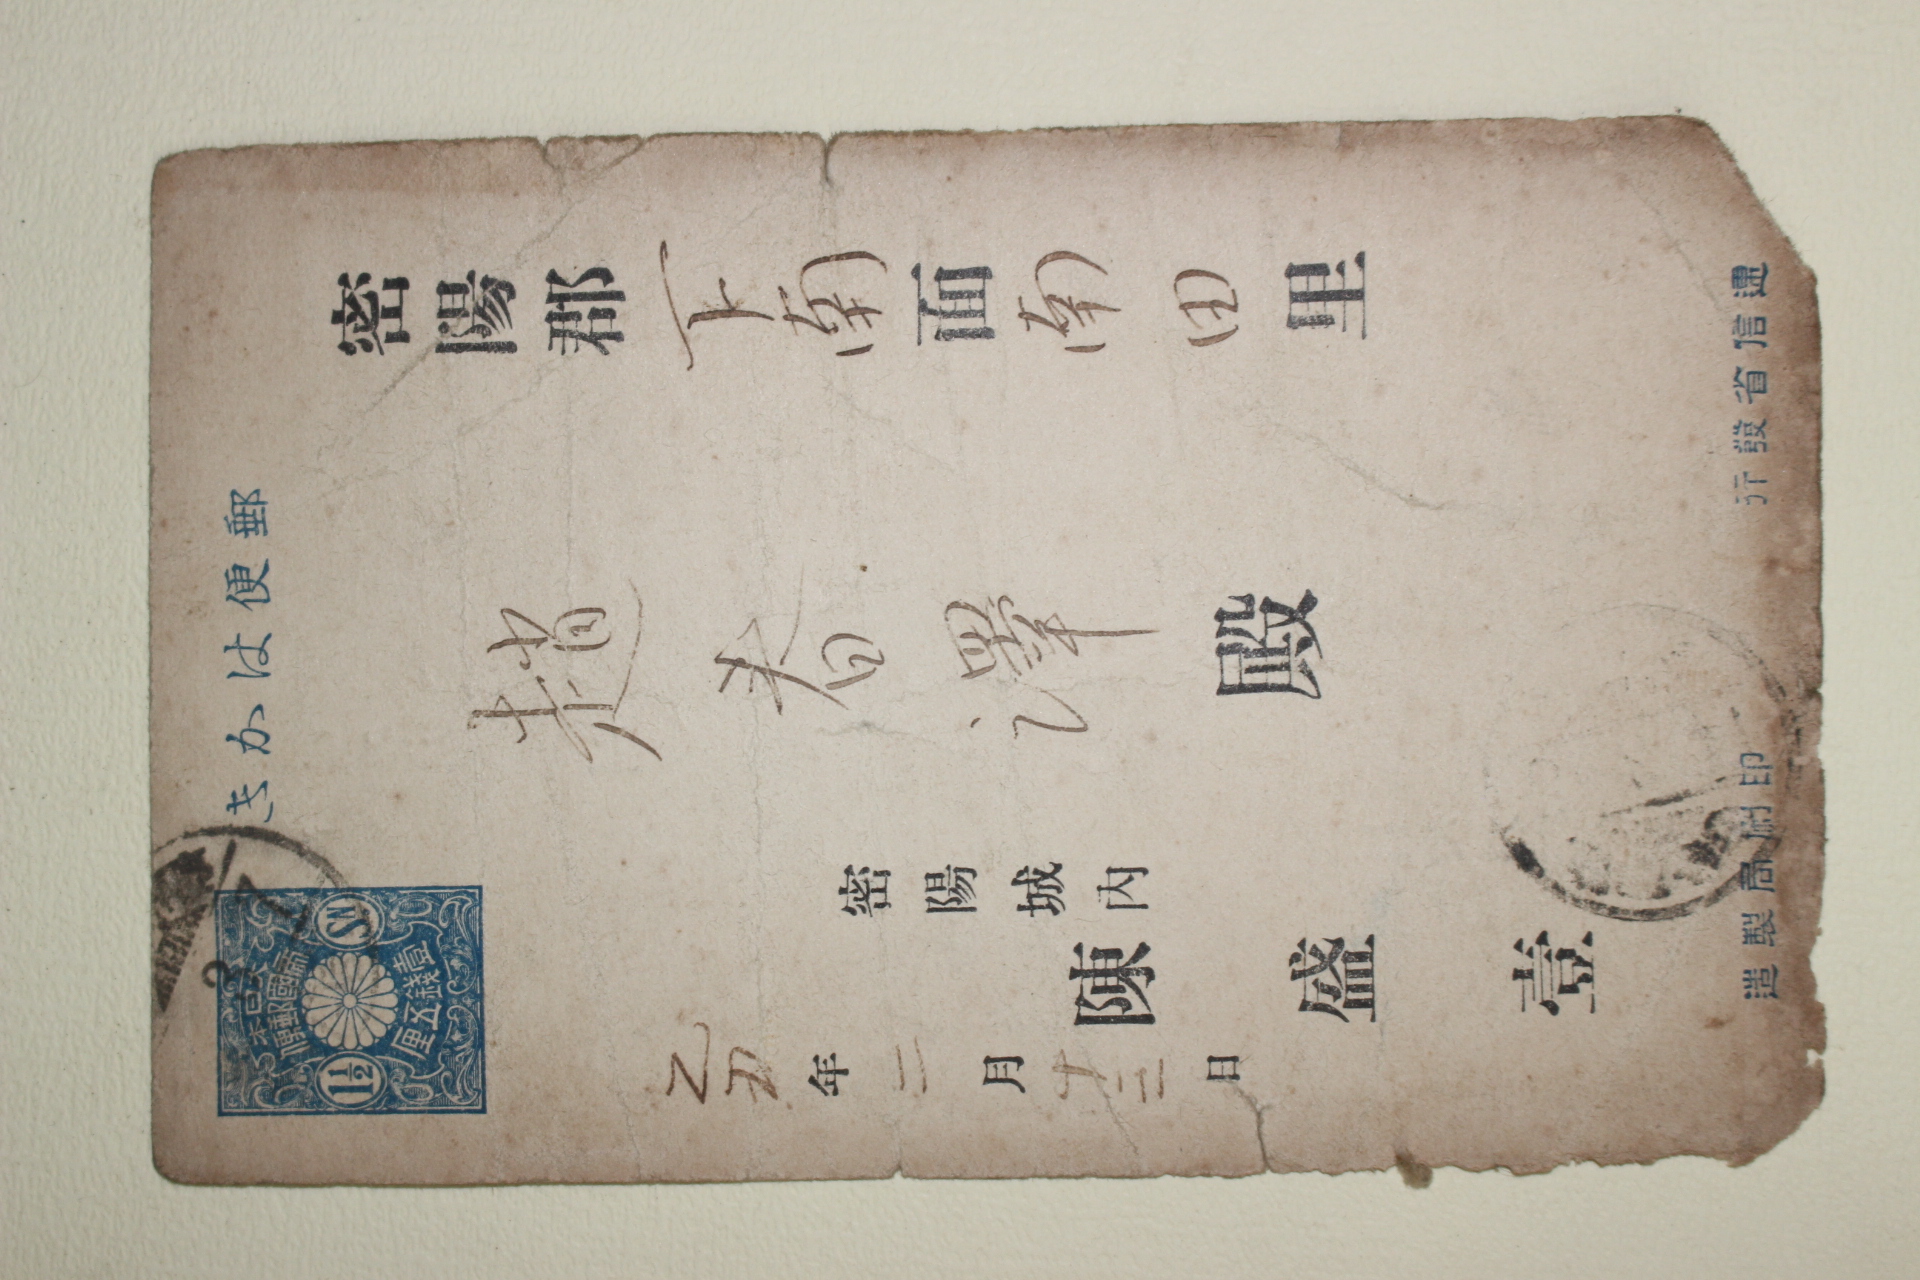 郵便はかき
大日本帝國郵便
壹錢五厘
1½ SN
密陽郡下南面南田里
趙春澤殿
密陽城內
陳盛壹
乙丑年二月十三日
遞信省發行
印刷局製造